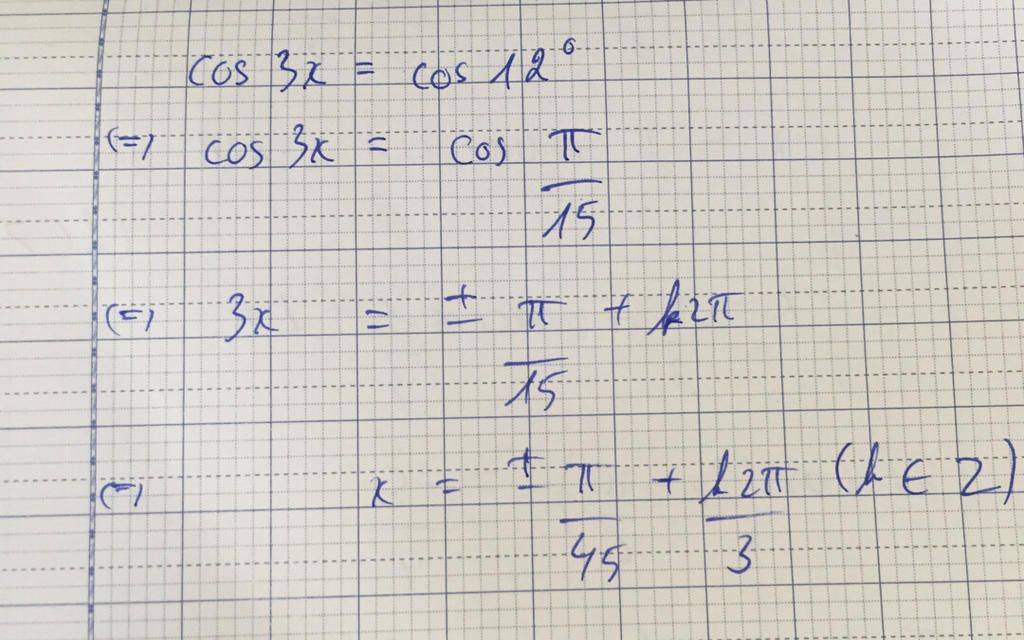 cos 3x = cos 12°
(=) cos 3x = cos π/15
(=) 3x = ± π/15 + k2π
(=) x = ± π/45 + k2π/3 (k ∈ Z)